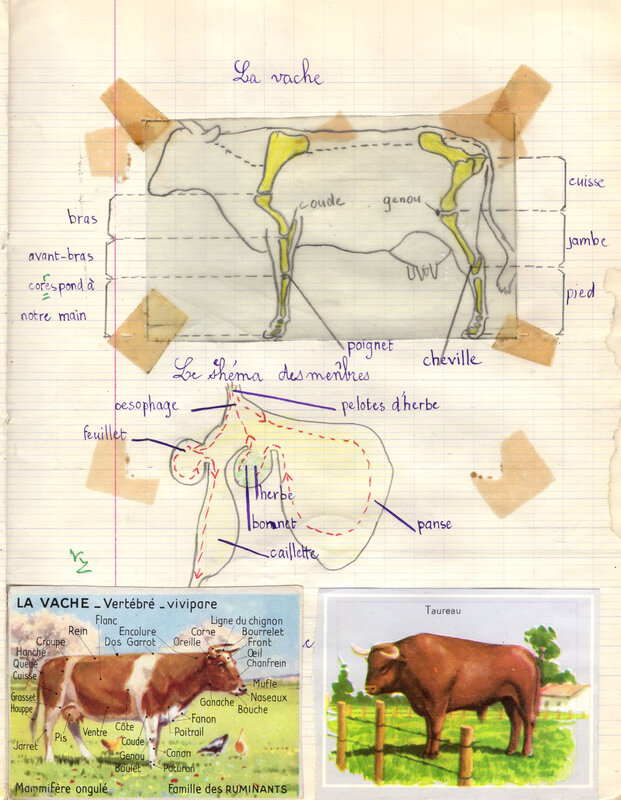 La vache
coude
genou
cuisse
bras
jambe
avant-bras
correspond à
pied
notre main
poignet
cheville
Le shéma des menbres
oesophage
pelotes d'herbe
feuillet
herbe
bonnet
panse
caillette
LA VACHE - Vertébré - vivipare
Flanc
Ligne du chignon
Rein
Encolure
Corne
Bourrelet
Croupe
Dos
Garrot
Oreille
Front
Hanche
Œil
Queue
Chanfrein
Cuisse
Mufle
Grasset
Ganache
Naseaux
Houppe
Bouche
Fanon
Côte
Poitrail
Pis
Ventre
Jarret
Coude
Genou
Canon
Boulet
Paturon
Mammifère ongulé
Famille des RUMINANTS
Taureau